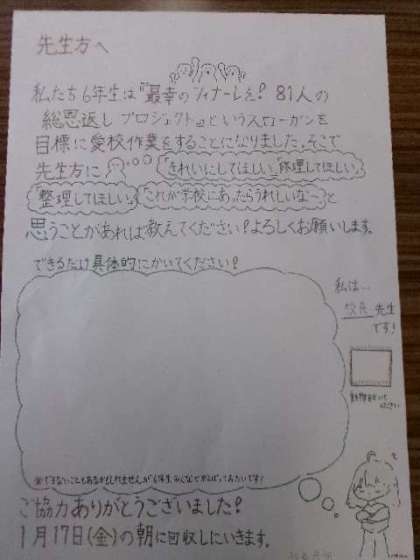 先生方へ
私たち6年生は『最幸のフィナーレを! 81人の
総恩返しプロジェクト』というスローガンを
目標に愛校作業をすることになりました。そこで
先生方に「きれいにしてほしい」「修理してほしい」
「整理してほしい」「これが学校にあったらうれしいな~」と
思うことがあれば教えてください!よろしくお願いします。
できるだけ具体的にかいてください!
私は…
校長先生
です!
※できないこともあるかもしれませんが6年生みんなでがんばっておこたいです!
ご協力ありがとうございました!
1月17日(金)の朝に回収しにいきます。